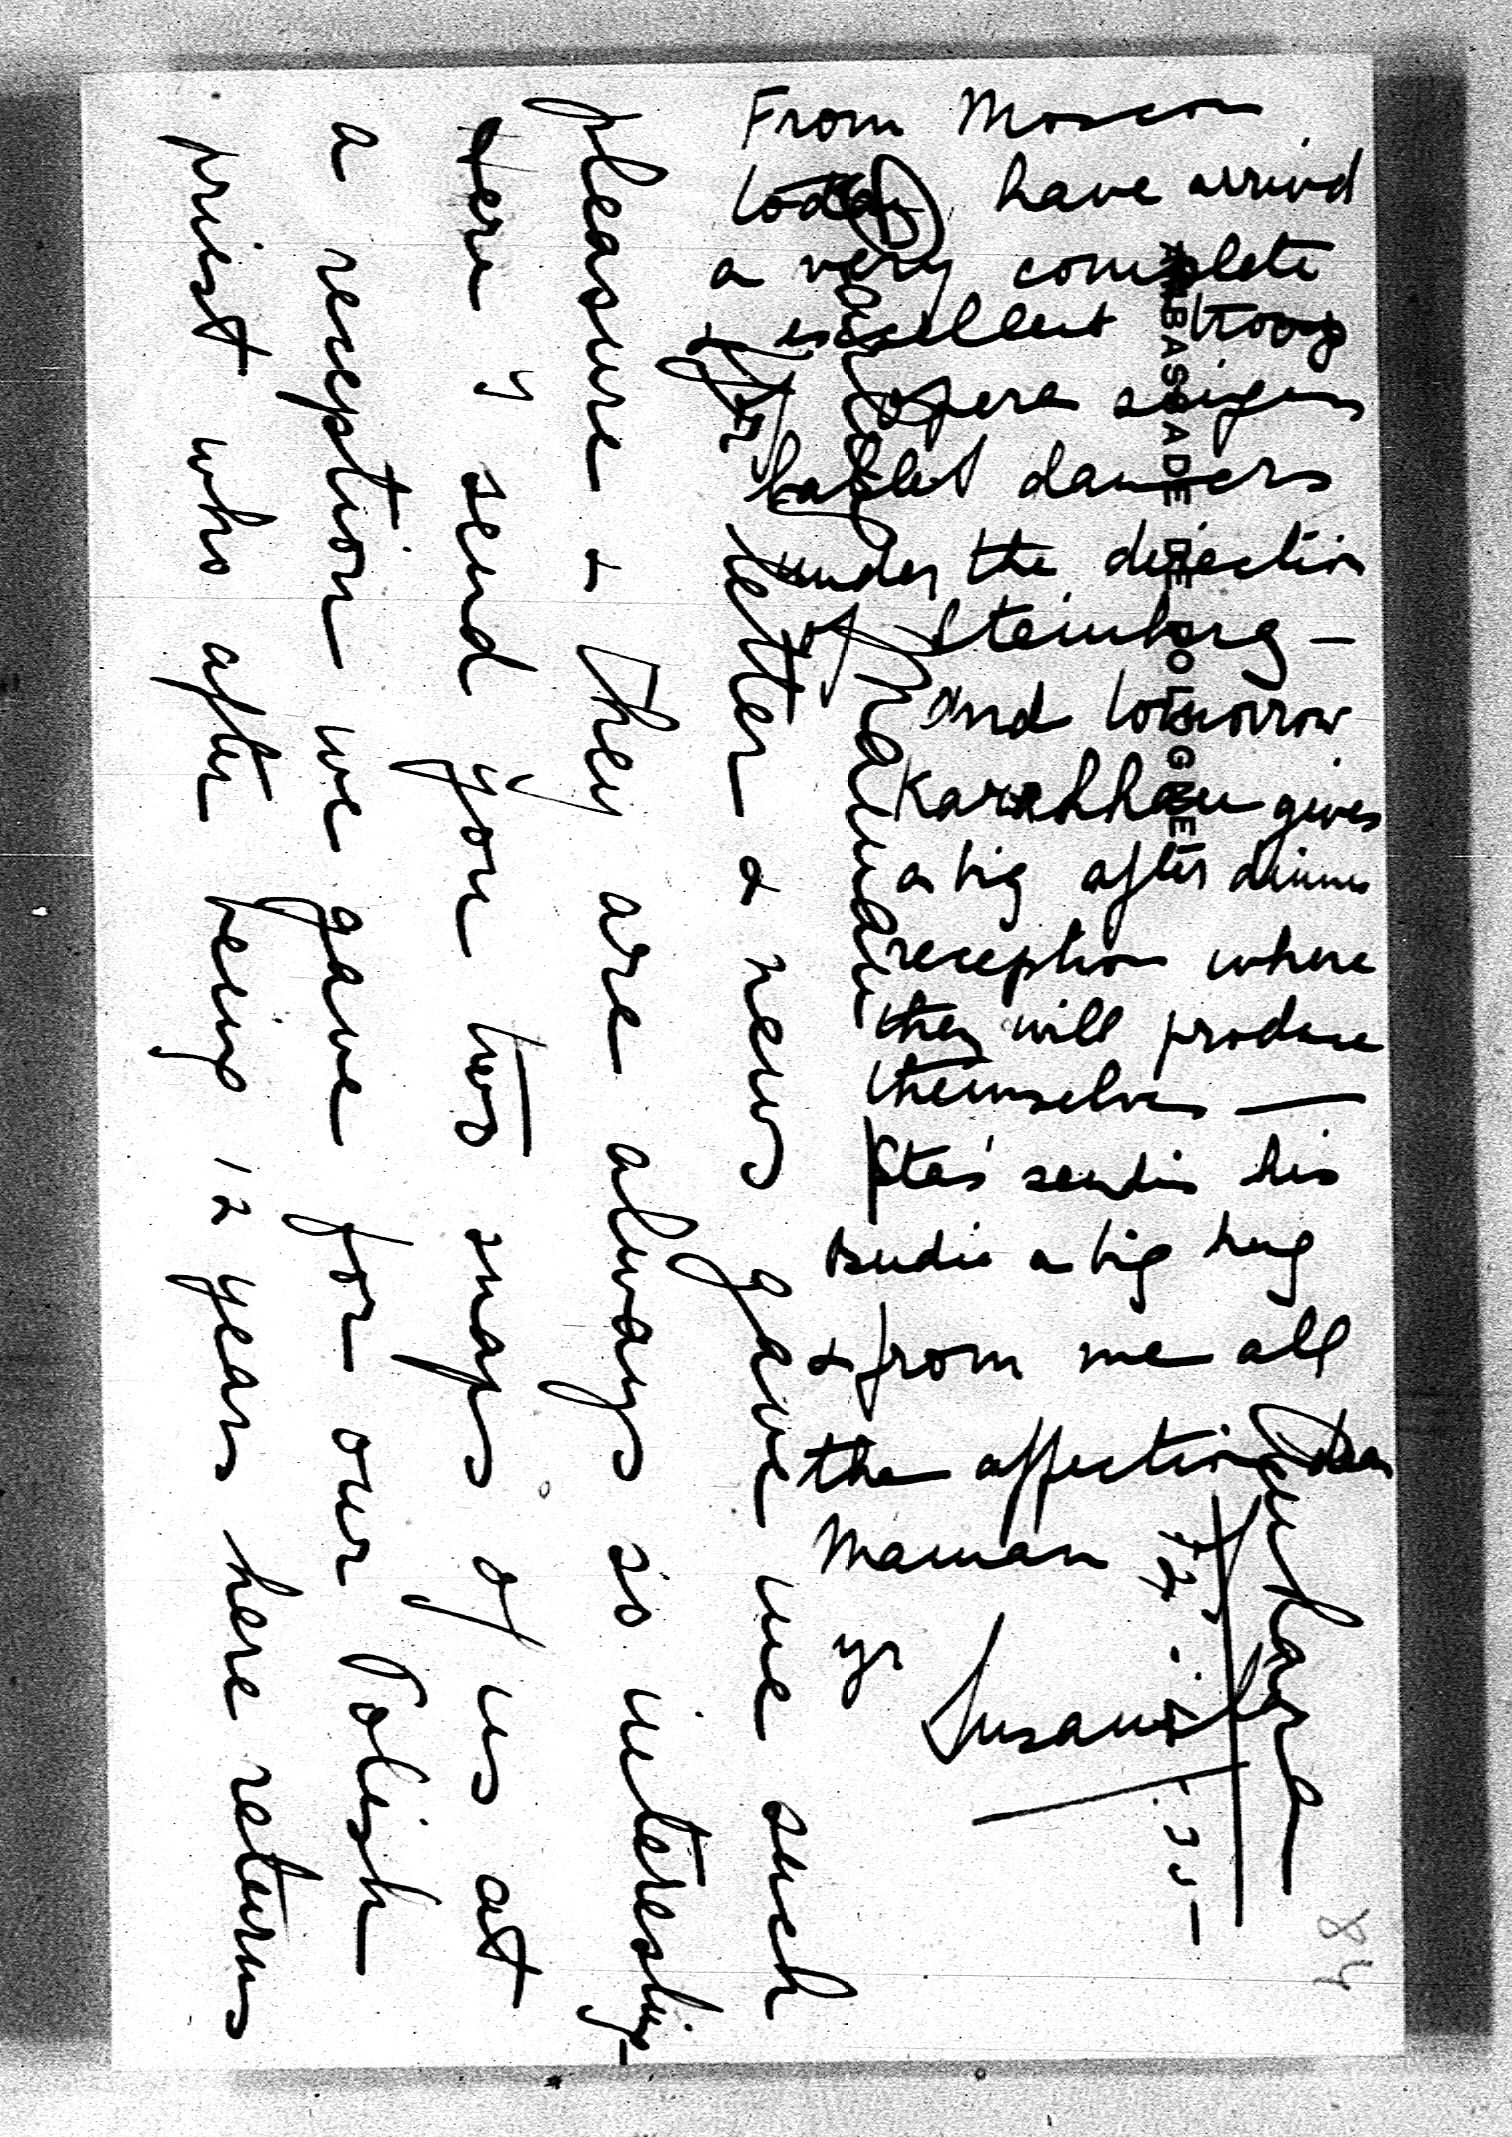 AMBASSADE DE POLOGNE
Ankara
84
Darling Maman
yr letter & news gave me such
pleasure & they are always so interesting –
Here I send you two snaps of us at
a reception we gave for our Polish
priest who after being 12 years here returns
From Moscow
today have arrived
a very complete
& excellent troop
of opera singers
ballet dancers
under the direction
of Steinberg –
and tomorrow
Karakhan gives
a big after dinner
reception where
they will produce
themselves —
Stas' sends his
Budie a big hug
& from me all
the affection Dear
Maman
yr
Susan